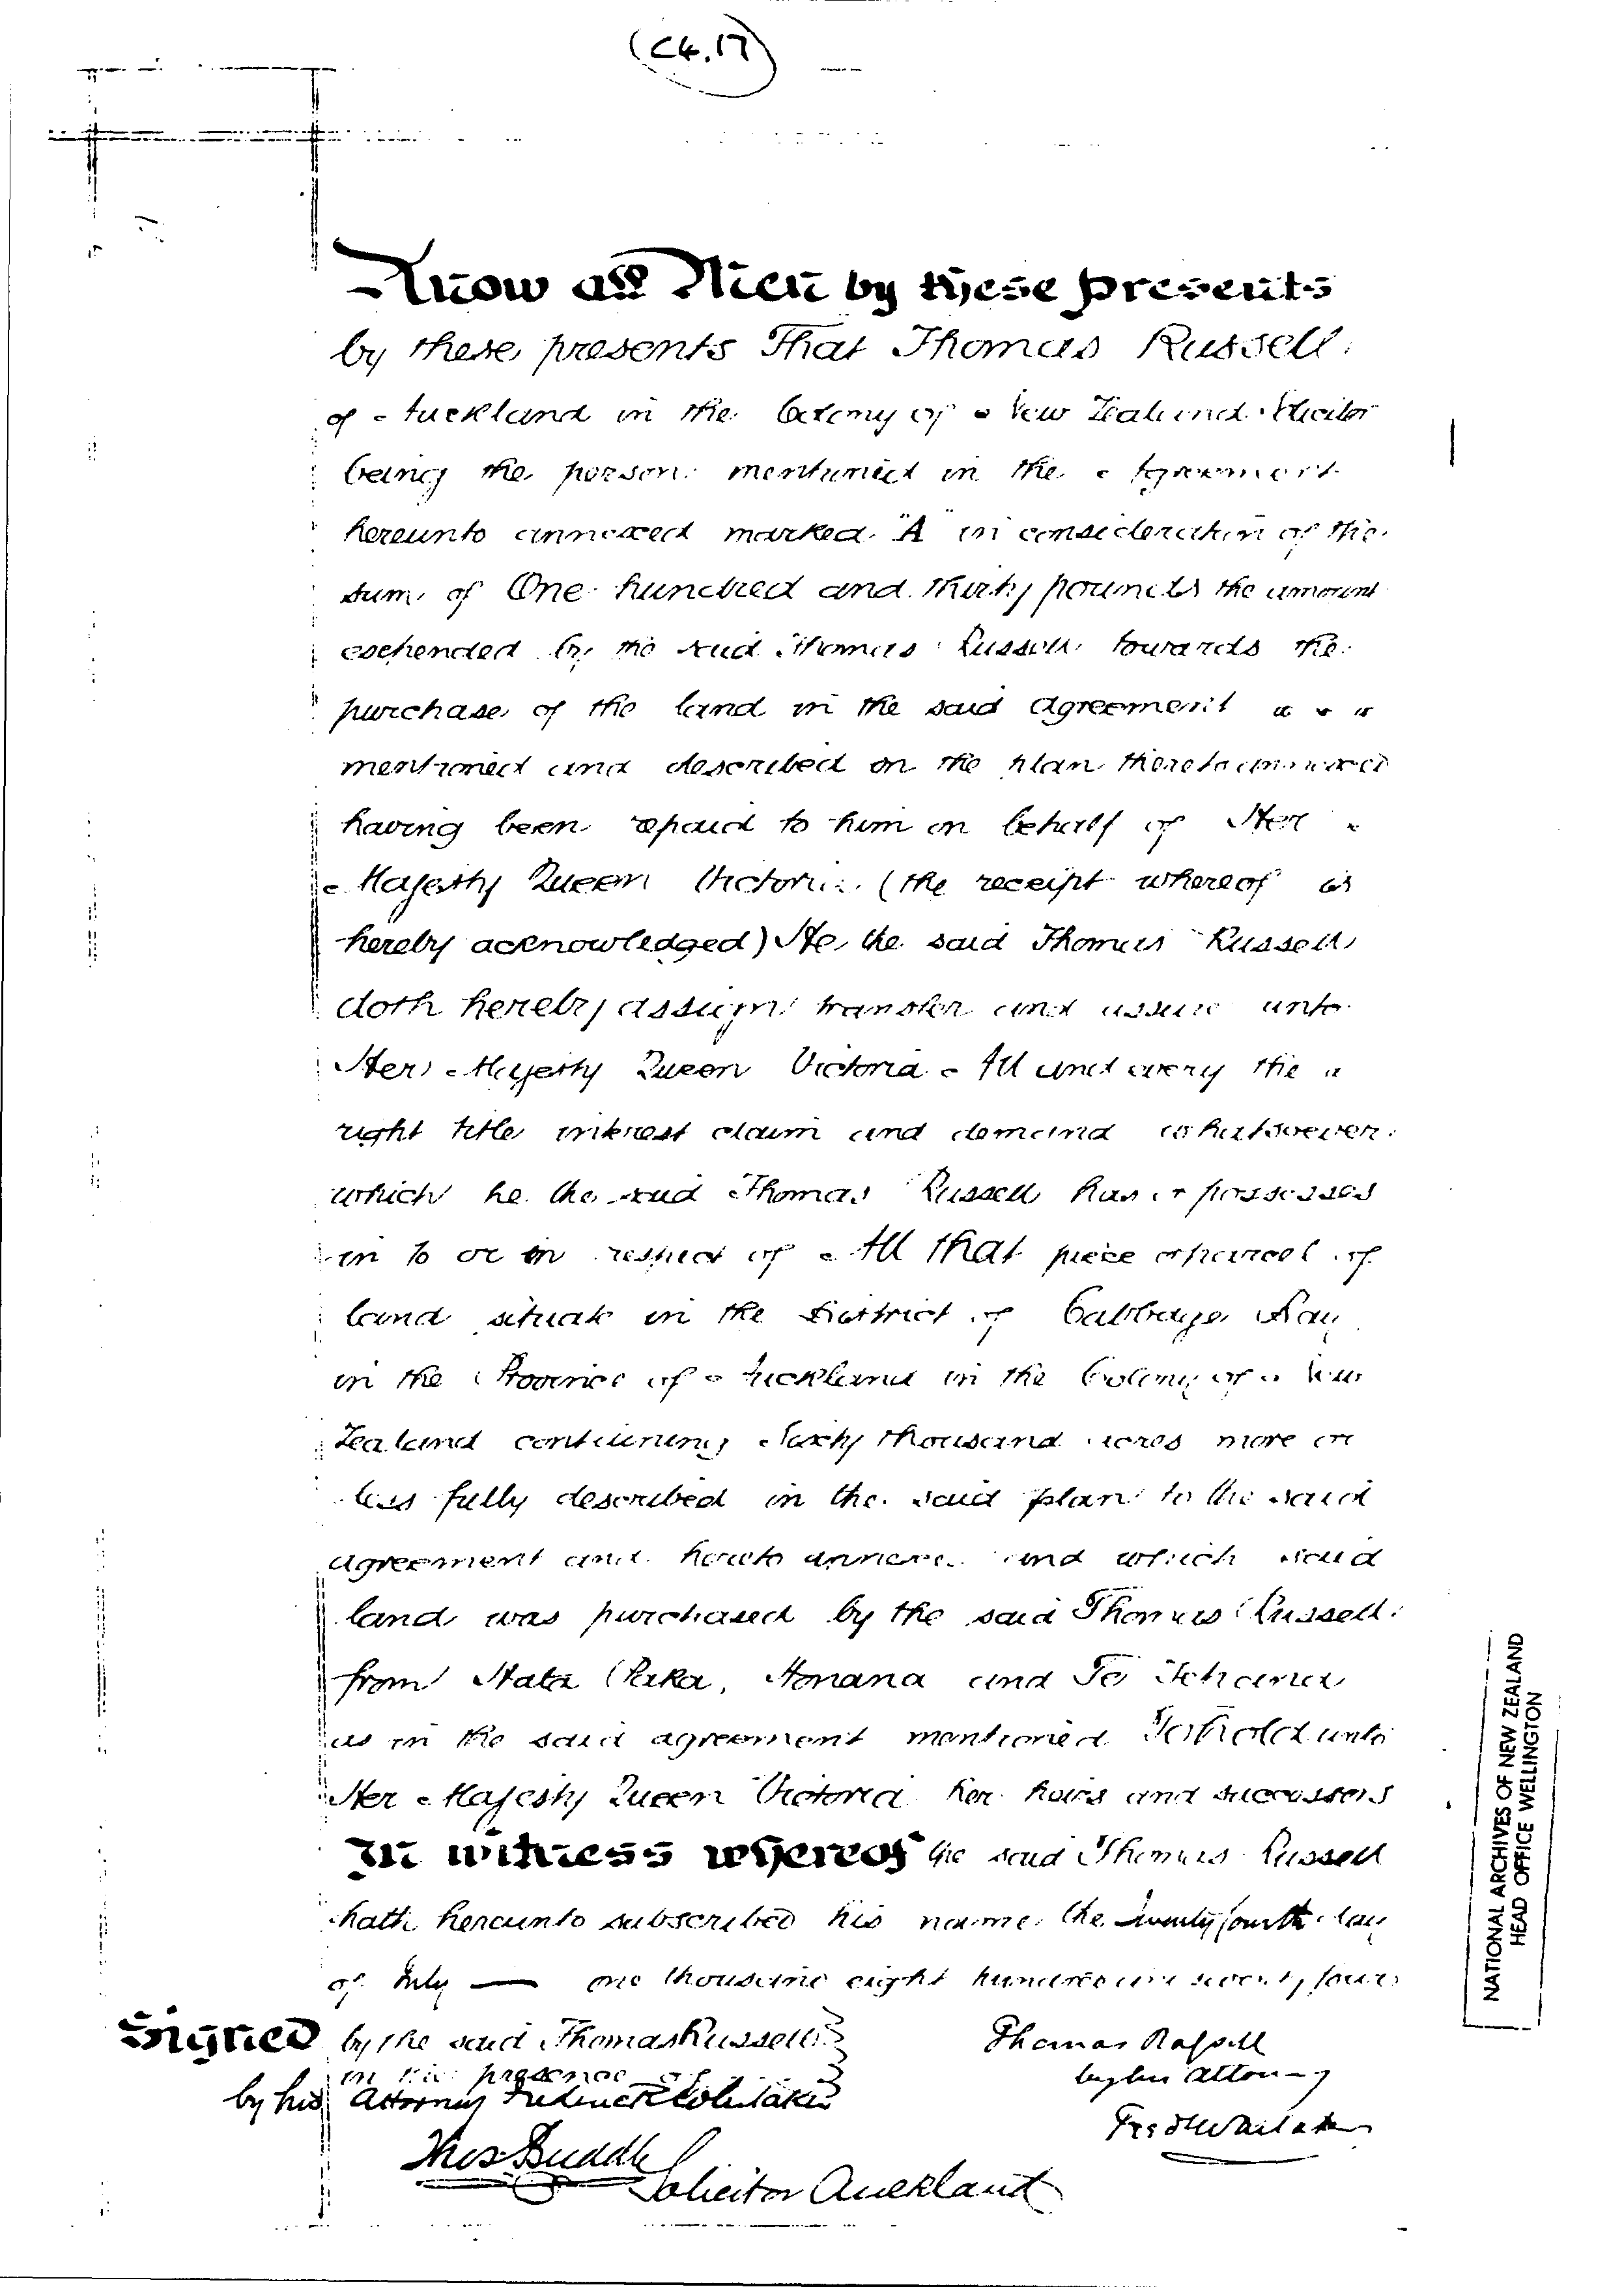 (C4.17)
Know all Men by these presents
by these presents That Thomas Russell
of Auckland in the Colony of New Zealand Solicitor
being the person mentioned in the Agreement
hereunto annexed marked "A" in consideration of the
sum of One hundred and thirty pounds the amount
expended by the said Thomas Russell towards the
purchase of the land in the said Agreement
mentioned and described on the plan thereto annexed
having been repaid to him on behalf of Her
Majesty Queen Victoria (the receipt whereof is
hereby acknowledged) He the said Thomas Russell
doth hereby assign transfer and assure unto
Her Majesty Queen Victoria All and every the
right title interest claim and demand whatsoever
which he the said Thomas Russell has or possesses
in to or in respect of All that piece or parcel of
land situate in the District of Cabbage Bay
in the Province of Auckland in the Colony of New
Zealand containing Sixty thousand acres more or
less fully described in the said plan to the said
agreement and hereto annexed and which said
land was purchased by the said Thomas Russell
from Hata Paka, Amana and Te
as in the said agreement mentioned To hold unto
Her Majesty Queen Victoria her heirs and successors
In witness whereof the said Thomas Russell
hath hereunto subscribed his name the twenty fourth day
of July — one thousand eight hundred and seventy four
Signed by the said Thomas Russell
in the presence of
by his Attorney Frederick Whitaker
Thos Buddle
Solicitor Auckland
Thomas Russell
by his Attorney
Fred Whitaker
NATIONAL ARCHIVES OF NEW ZEALAND
HEAD OFFICE WELLINGTON